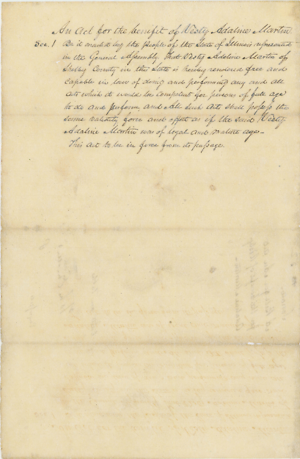 An Act for the benefit of Adaline Martin
Sec. 1 Be it enacted by the people of the State of Illinois represented
in the General Assembly That Adaline Martin of
County in this State is hereby rendered free and
capable in law of doing and performing any and all
acts which it would be competent for persons of full age
to do and perform and all such acts shall possess the
same validity force and effect as if the said
Martin was of legal and mature age.
This act to be in force from its passage